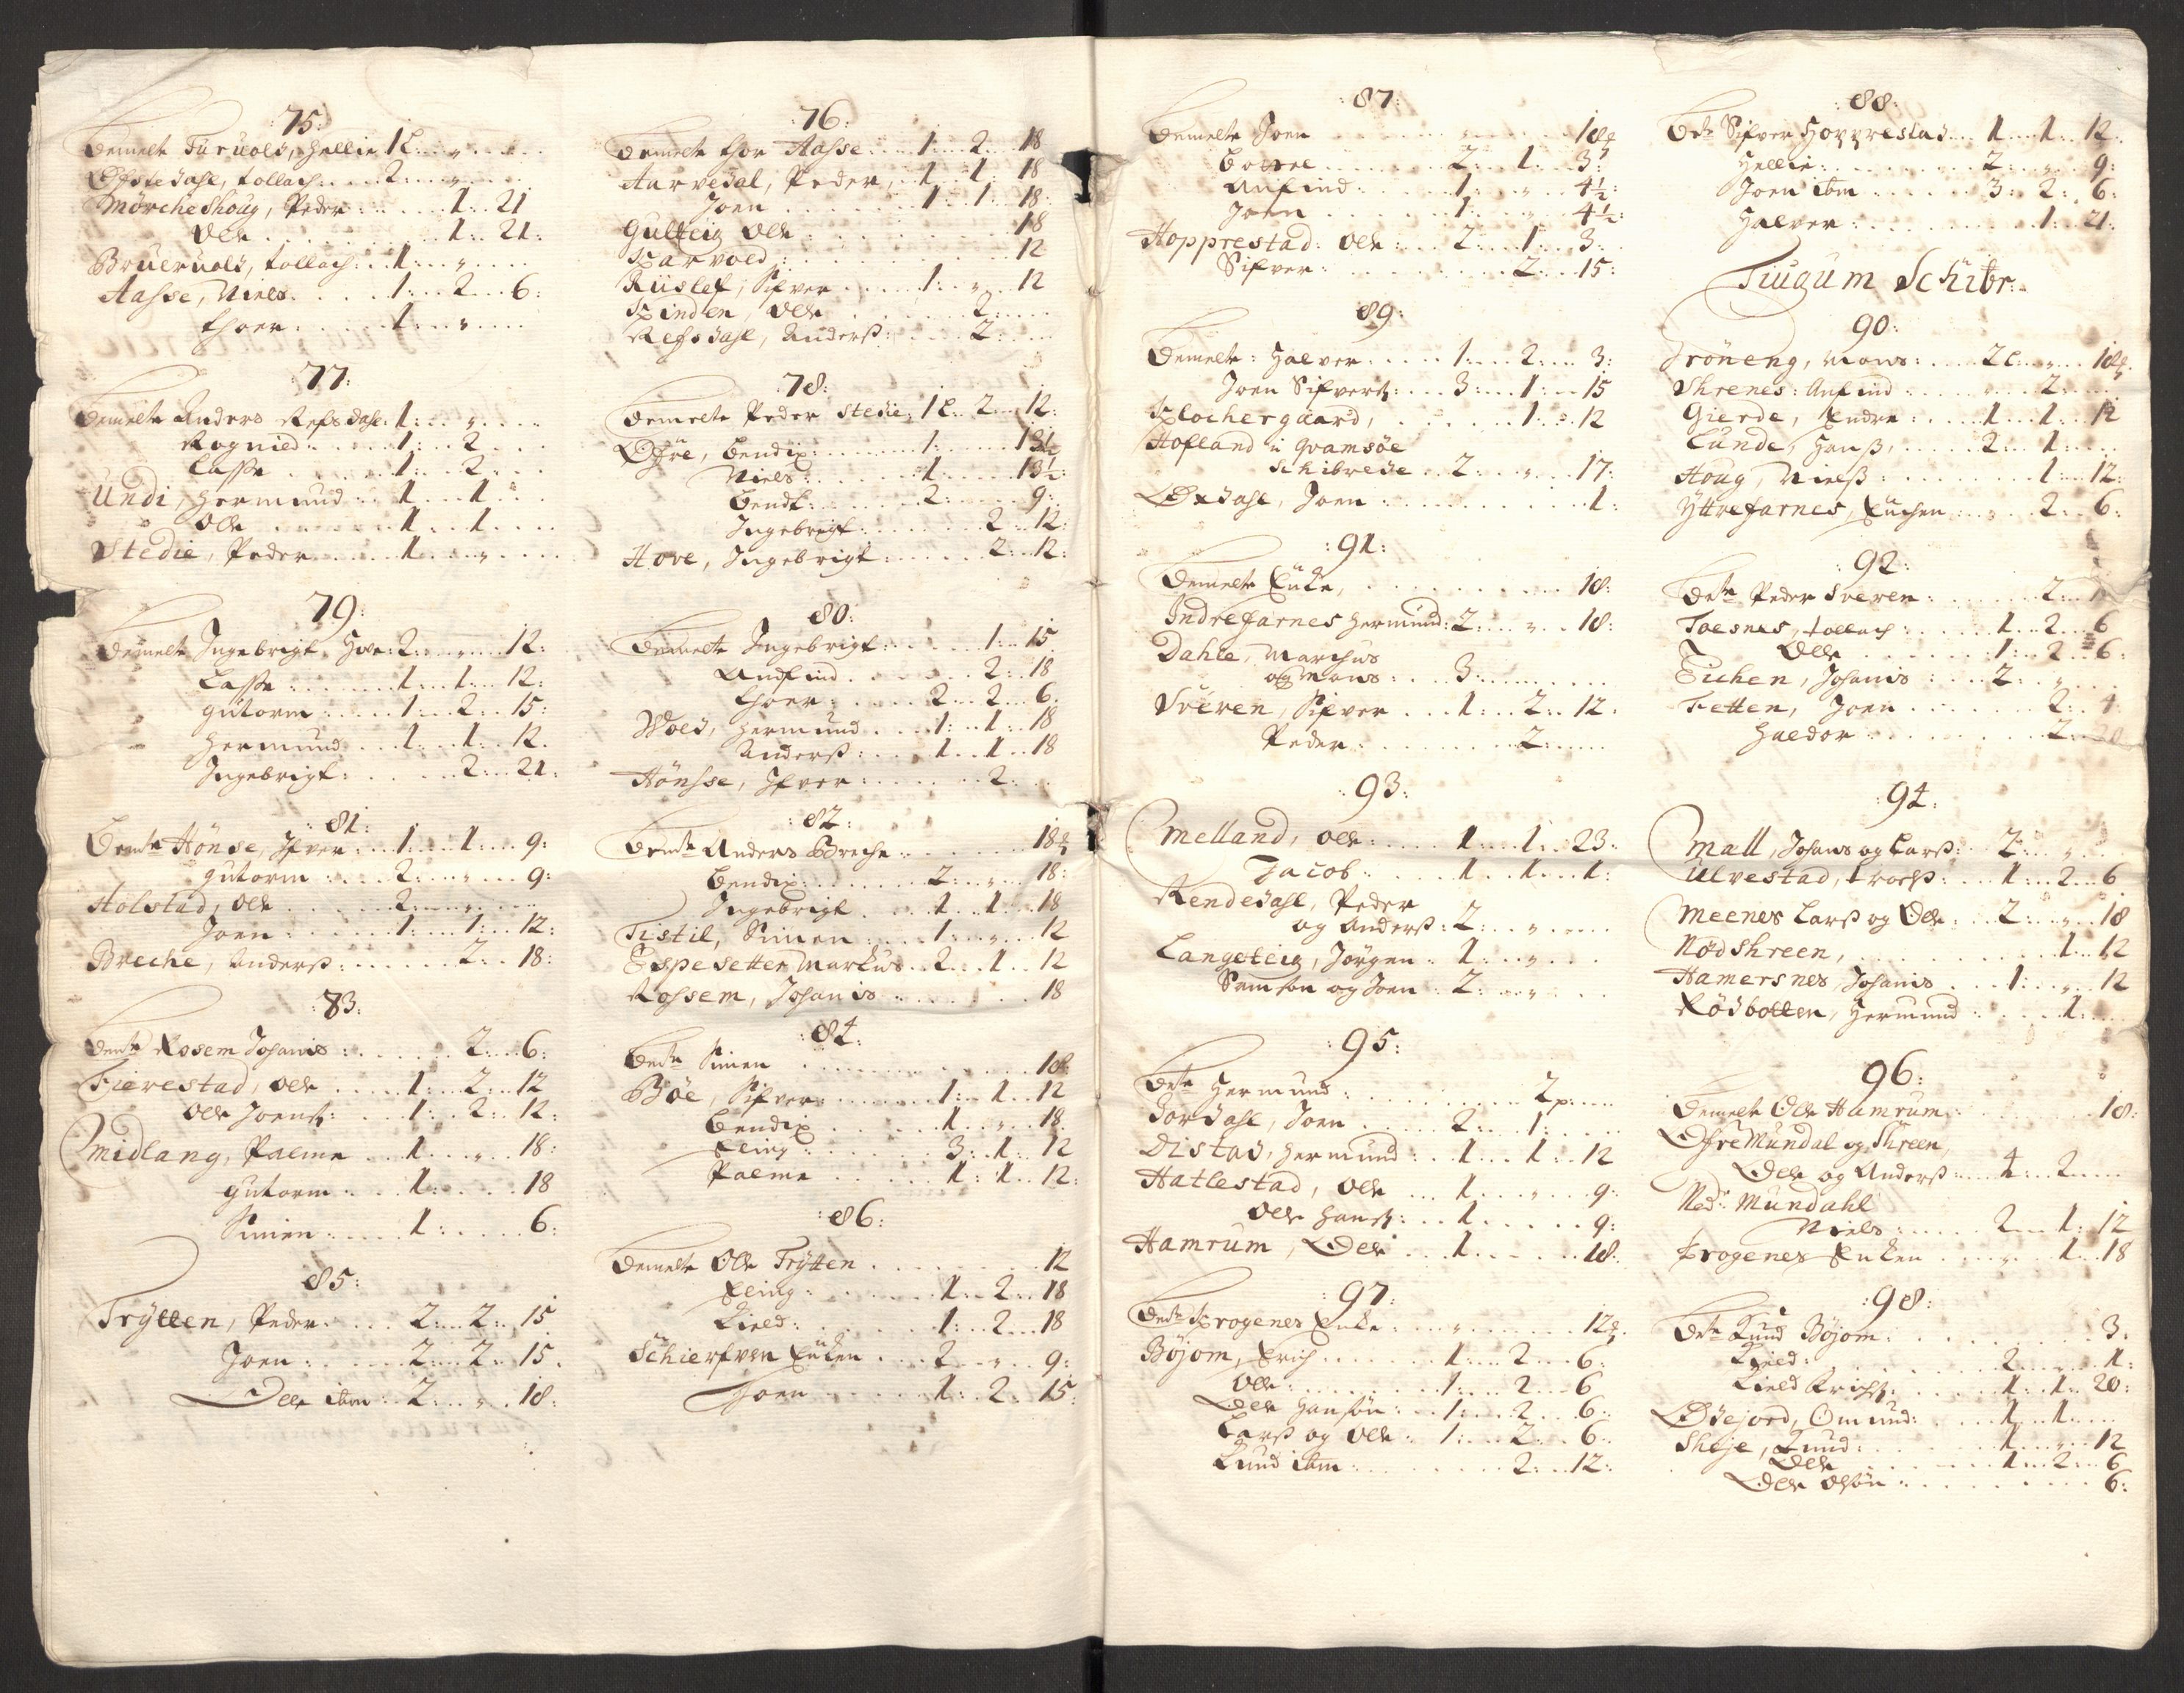 :75:
Bemelte Turuold, Hellie 1 L. . „ . .
Ofstedahl, Tollach: . . 2: . . „ . .
Mörcheshoug, Peder: . . . 1: 21
Olle . . . . 1: 21:
Brueruold, Tollach: . . 1: . „ . .
Aasse, Niels. . . 1: . . 2 . . 6:
Thoer: . . . 1: . „ . .
:77:
Bemelte Anders Refsdahl: 1: . „ . .
Rognied . . 1: . . 2 . .
Lasse . . . 1: . . 2 . .
Undi, Hermund . . 1 . . 1 . .
Olle . . . 1 . . 1 . .
Stedie, Peder . . . 1 . . „ . .
:79:
Bemelte Ingebrigt Hove: 2: . „ . . 12:
Lasse . . . 1: . . 1: . . 12:
Gutorm . . . 1: . . 2: . . 15:
Hermund . . 1: . . 1: . . 12.
Ingebrigt: . . . 2: . . 21:
:81:
Bemte Hönse, Ifver . . 1: . . 1: . . 9:
Gutorm . . . 2: . . „ . . 9:
Holstad, Olle . . . 2: . . „ . .
Joen . . . 1: . . 1: . . 12:
Breche, Anderss: . . . 2: . . 18:
:83:
Bemte Rosem Johanis: . . . 2: . . 6:
Fierestad, Olle . . . 1: . . 2: . . 12
Olle Joens: . . . 1: . . 2: . . 12:
Midlang, Palme . . 1: . . „ . . 18:
Gutorm . . . 1: . . . 18
Simen . . . 1: . . . 6:
:85:
Trytten, Peder. . . 2: . . 2: . . 15
Joen: . . . 2: . . 2: . . 15.
Olle ibm: . 2: . . „ . . 18:
:76:
Bemelte Thor Aasse: . . 1: . . 2: . . 18
Aarvedal, Peder, . . 1 . . 1: . . 18
Joen . . . 1: . . 1: . . 18:
Gulteig Olle . . . 18
Skarvold: . . . 12
Risslef, Sifver . . . 1: . . „ . . 12
Skindlen, Olle . . . 2: . .
Refsdahl, Anderss: . . . 2: . .
:78:
Bemelte Peder Stedie: 1 L . . 2 . . 12:
Øfre, Bendix: . . . 1: . . . 13½
Niels: . . . 1: . . . 13½:
Bendt: . . . 2: . . . 9:
Ingebrigt . . . 2: . . 12:
Hove, Ingebrigt: . . . 2: . . 12:
:80:
Bemelte Ingebrigt: . . . 1: . . 15
Andfind. . . . 2: . . 18
Thoer: . . . 2: . . 2: . . 6:
Wold, Hermund . . . 1: . . 1: . . 18
Anderss: . . . 1: . . 1: . . 18
Hönsse, Ifver: . . . 2: . .
:82:
Bemte Anders Breche: . . . 18
Bendix: . . . 2: . . „ . . 18:
Ingebrigt . . . 1: . . 1: . . 18
Tistil, Simen: . . . 1: . . „ . . 12
Espesetter Markus . 2: . . 1: . . 12
Rossem, Johanis . . . 18
:84:
Bemte Simen . . . 18:
Böe, Sifver: . . . 1: . . 1: . . 12
Bendix . . . 1: . . „ . . 18.
Eling: . . . 3: . . 1: . . 12
Palme . . . 1: . . 1: . . 12:
:86:
Bemelte Olle Trytten . . . 12
Eling: . . . 1: . . 2: . . 18
Kield: . . . 1: . . 2: . . 18
Schierfven Encken . . . 2: . . „ . . 9:
Joen . . . 1: . . 2: . . 15:
:87:
Bemelte Joen . . . 18
Botvel . . . 2: . . 1: . . 3:
Anfind . . . 1: . . „ . . 4½:
Joen . . . 1: . . „ . . 4½:
Hopprestad: Olle: . . 2: . . 1: . . 3:
Sifver: . . . 2: . . 15:
:89:
Bemelte: Halver . . . 1: . . 2: . . 3:
Joen Sifvers: . . 3: . . 1: . . 15
Klochergaard, . . . 1: . . 12
Hofland i Qvamsöe
Schibrede . . 2: . . „ . . 17:
Oxdahl, Joen . . . 1:
:91:
Bemelte Enke, . . . 18:
Indrefarnes Hermund: 2: . . „ . . 18:
Dahle, Marchus
og Mons: . . 3: . . .
Sveren, Sifver . . . 1: . . 2: . . 12.
Peder . . . 2: . .
:93:
Melland, Olle: . . . 1: . . 1: . . 23:
Jacob . . . 1: . . 1: . . 1:
Rendedahl, Peder
og Anderss: 2: . . „ . .
Langeteig, Jörgen . 1: . . „ . .
Samson og Joen . 2: . . „ . .
:95:
Bte Hermund: . . . 2: . .
Jordahl, Joen . . . 2: . . 1: . .
Distad, Hermund . . . 1: . . 1: . . 12
Hatlestad, Olle . . . 1: . . „ . . 9:
Olle Hans: . . 1: . . . 9:
Hamrum, Olle . . . 1: . . . 18:
:97:
Bemte Progenes Enke: . . „ . . 12
Böjom, Erich . . . 1: . . 2: . . 6:
Olle: . . . 1: . . 2: . . 6
Olle Hansön: . . 1: . . 2: . . 6:
Larss og Olle: . 1: . . 2: . . 6:
Knud ibm: . . . 2: . . 12:
:88:
Bte Sifver Hopprestad . . 1: . . 1: . . 12.
Hellie: . . . 2: . . „ . . 9:
Joen ibm . . . 3: . . 2: . . 6:
Halver: . . . 1: . . 21:
Tiugum Schibr:
:90:
Tröneng, Mons: . . . 2 L: . . „ . . 18
Shrenes: Anfind . . . „ . . 2: . .
Gierde, Endre . . . 1: . . 1: . . 12
Lunde, Hanss, . . . 2: . . 1: . .
Houg, Nielss: . . . 1: . . 12:
Yttrefarnes, Enchen . . . 2: . . 6:
:92:
Bte Peder Sveren: . . . 2: . .
Toesnes, Tollach: . . . 1: . . 2: . . 6
Olle . . . 1: . . 2: . . 6:
Eichen, Johanis . . . 2: . . „ . .
Fetten, Joen . . . 2: . . 4
Haldor . . . 2: . .
:94:
Mall, Johans og Larss: . . 2: . . „ . .
Ulvestad, Troelss: . . . 1: . . 2: . . 6
Meenes Larss og Olle: . . 2: . . „ . . 18
Nødshreen, . . . 1: . . 12
Hamersnes, Johanis . . . 1: . . „ . . 12
Rödbotten, Hermund . . . 1: . .
:96:
Bemelte Olle Hamrum: . . . 18:
Øfre Mundal og Shreen,
Olle og Anderss: . . . 4: . . 2: . .
Nedr Mundahl
Niels: . . . 2: . . 1: . . 12
Progenes Encken . . . „ . . 1: . . 18
:98:
Bte Knud Böjom: . . . 3:
Kield: . . . 2: . . „ . . 1:
Kield Erichs: . . . 1: . . 1: . . 20:
Ødejord, Omund: . . . 1: . . 1: . .
Sheje, Knud: . . . 1: . . „ . . 12
Olle . . . 1: . . 2: . . 6
Olle Olsön: . . . 6: